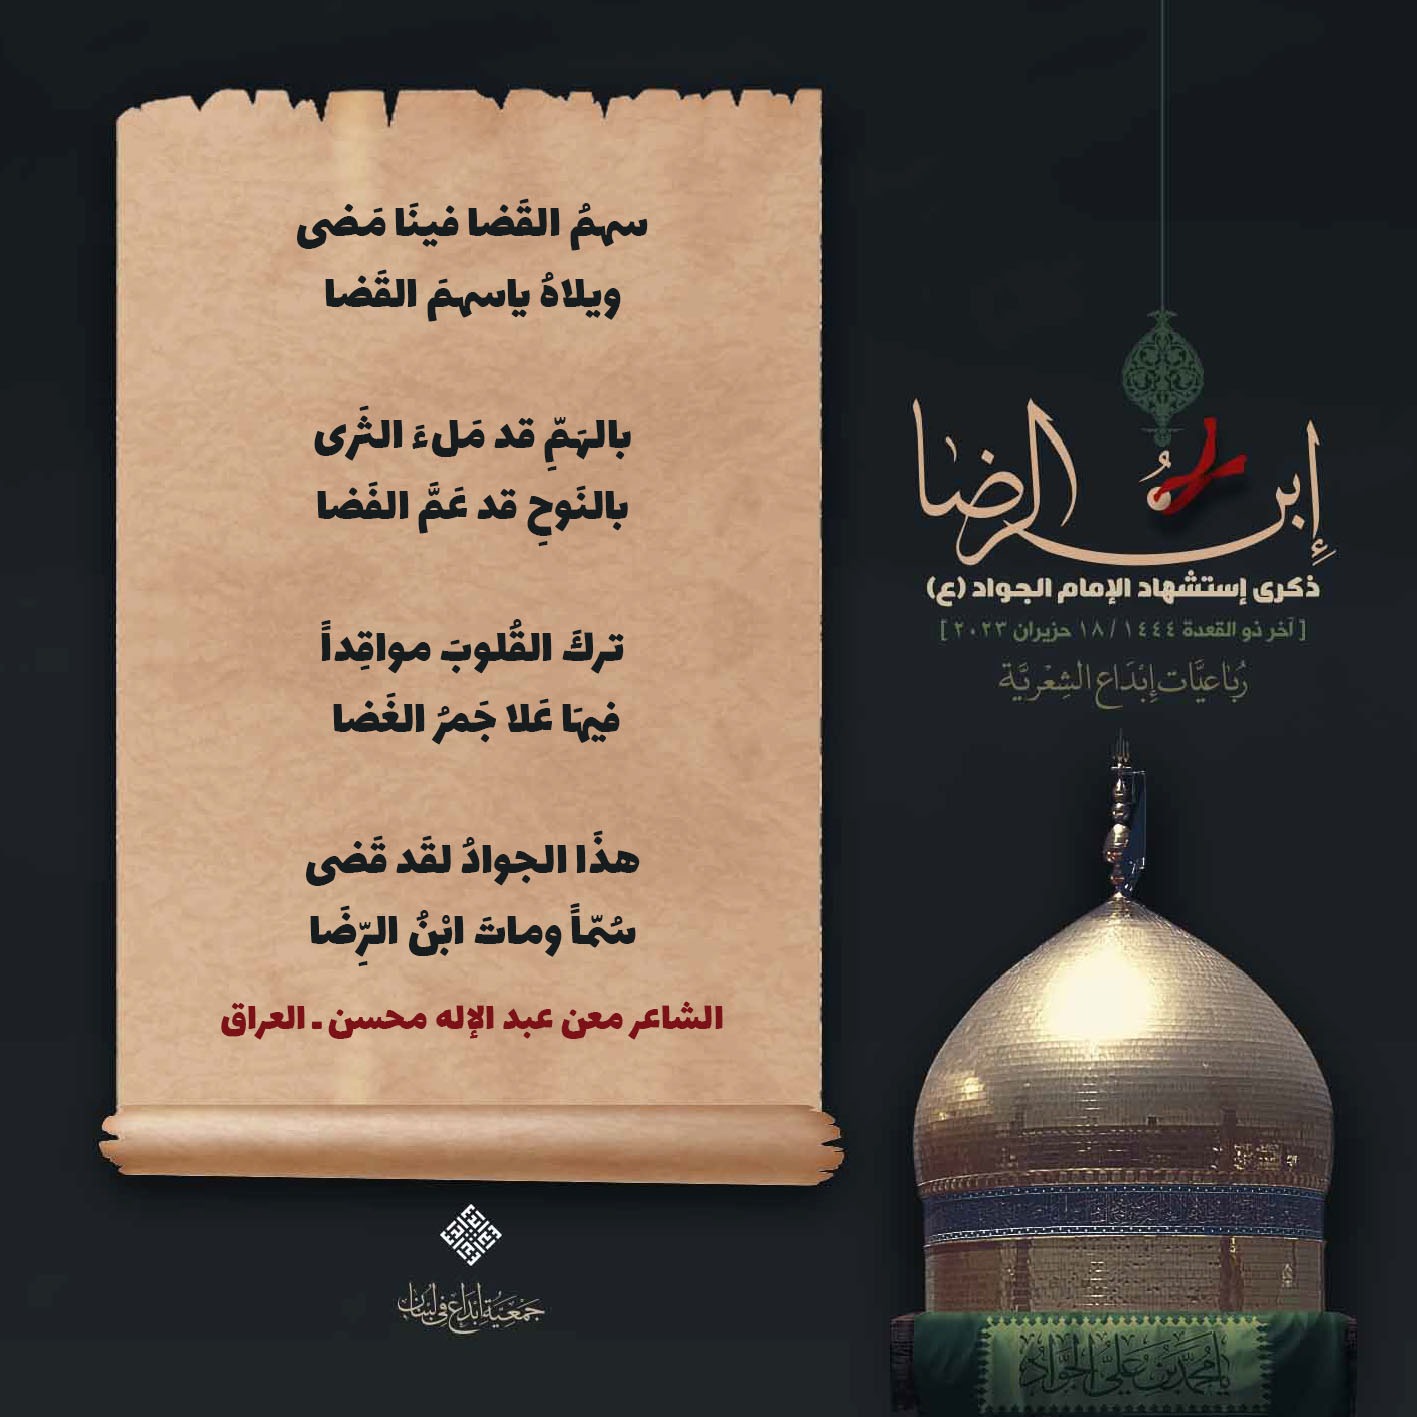 إبنُ الرضا
ذكرى إستشهاد الإمام الجواد (ع)
[ آخر ذو القعدة ١٤٤٤ / ١٨ حزيران ٢٠٢٣ ]
رُبَاعِيَّات إِبْدَاع الشِعْريَّة
سهمُ القَضا فينَا مَضى
ويلاهُ ياسهمَ القَضا
بالهَمِّ قد مَلءَ الثَرى
بالنَوحِ قد عَمَّ الفَضا
تركَ القُلوبَ مواقِداً
فيهَا عَلا جَمرُ الغَضا
هذَا الجوادُ لقَد قَضى
سُمّاً وماتَ ابْنُ الرِّضَا
الشاعر معن عبد الإله محسن ـ العراق
جَمْعِيَّة إبْدَاع في لبْنَان
يا مُحَمَّد بْن عَلِيّ الجَوَاد